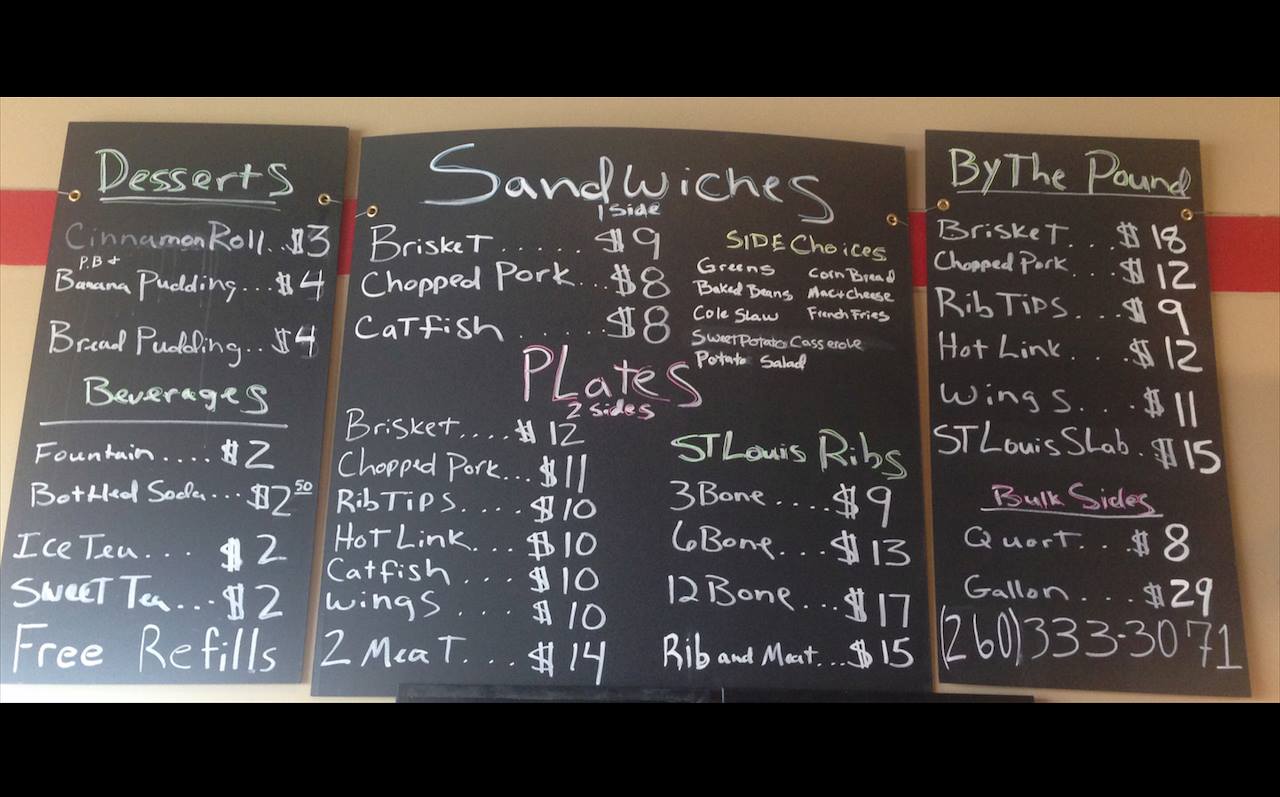 Desserts
Cinnamon Roll..$3
P.B +
Banana Pudding...$4
Bread Pudding..$4
Beverages
Fountain....$2
Bottled Soda...$2 50
Ice Tea....$2
Sweet Tea...$2
Free Refills
Sandwiches
1 Side
Brisket.....$9
Chopped Pork...$8
Catfish......$8
SIDE Choices
Greens
Baked Beans
Cole Slaw
Corn Bread
Mac+Cheese
French Fries
Sweet Potato Casserole
Potato Salad
Plates
2 sides
Brisket....$12
Chopped Pork...$11
Rib Tips....$10
Hot Link...$10
Catfish....$10
Wings....$10
2 Meat....$14
ST Louis Ribs
3 Bone....$9
6 Bone...$13
12 Bone...$17
Rib and Meat...$15
By The Pound
Brisket...$18
Chopped Pork..$12
Rib Tips...$9
Hot Link...$12
Wings....$11
ST Louis Slab.$15
Bulk Sides
Quart...$8
Gallon....$29
(260)333-3071